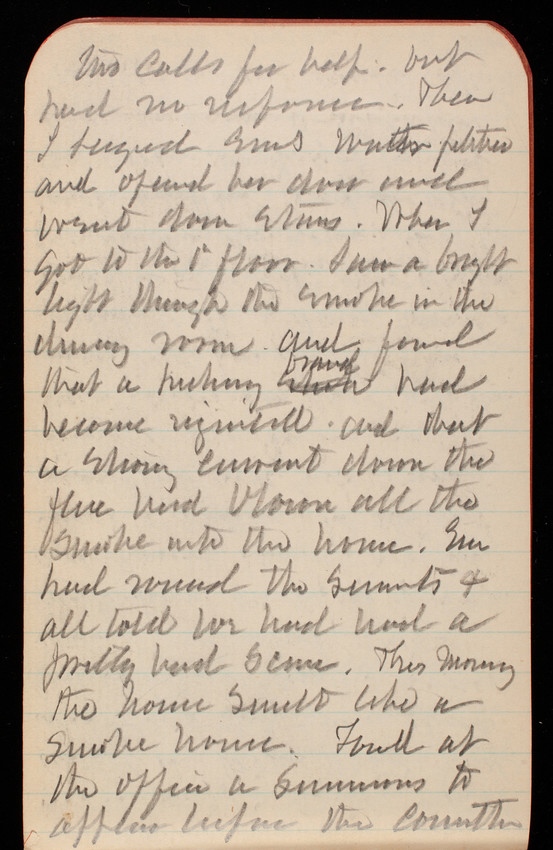 two calls for help. but
had no response. Then
I
and opened her door and
went down stairs. When I
got to the 1st floor. I saw a bright
light through the smoke in the
dining room and found
that a hickory brand had
become reignited. and that
a strong current down the
flue had blown all the
smoke into the house. Em
had roused the servants &
all told we had had a
pretty bad scare. This morning
the house smelt like a
smoke house. Found at
the office a summons to
appear before the Committee